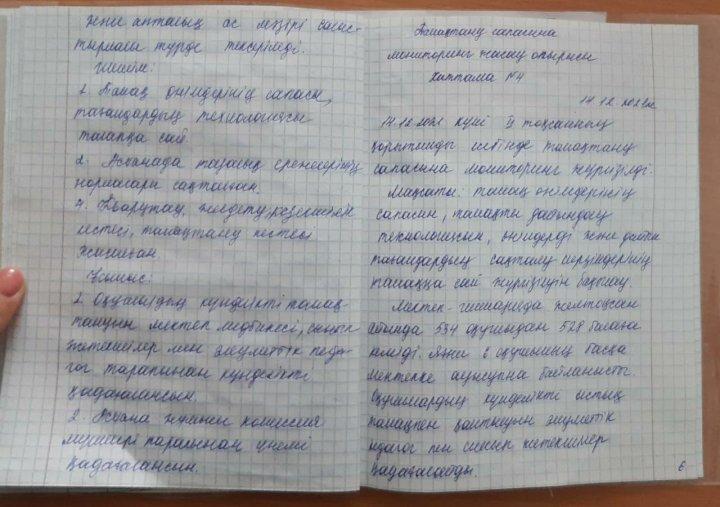 және апталық ас мәзірі салыс-
тырмалы түрде тексерілді.
Шешім:
1. Тамақ өнімдерінің сапасы,
тағамдардың технологиясы
талапқа сай.
2. Асханада тазалық ережелерінің
нормалары сақталған.
кестесі, тамақтану кестесі
Ұсыныс:
1. Оқушылардың күнделікті тамақ-
тануын мектеп медбикесі, сынып
жетекшілер мен әлеуметтік педа-
гог тарапынан күнделікті
қадағалансын.
2. Асхана жұмысы комиссия
мүшелері тарапынан үнемі
қадағалансын.
Тамақтану сапасына
мониторинг жасау отырысы
Хаттама №4
14.12.2021ж
14.12.2021 күні II тоқсанның
қорытынды ішінде тамақтану
сапасына мониторинг жүргізілді.
Мақсаты: тамақ өнімдерінің
сапасын, тамақты дайындау
технологиясын, өнімдерді және дайын
тағамдардың сақталу мерзімдерінің
талапқа сай жүргізілуін бақылау.
Мектеп-гимназияда желтоқсан
айында 534 оқушыдан 528 балаға
келді. Яғни 6 оқушының басқа
мектепке ауысуына байланысты.
Оқушылардың күнделікті ыстық
тамақпен қамтылуын әлеуметтік
педагог пен сынып жетекшілер
қадағалайды.
6